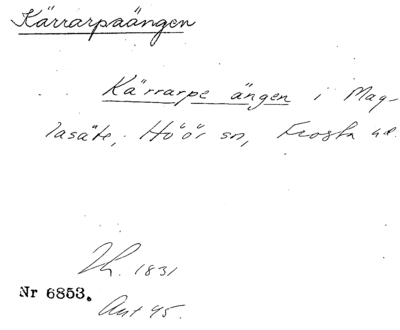 Kärrarpaängen
Kärrarpe ängen i Mag-
lasäte, Höör sn, Frosta hd.
Lh. 1831
Nr 6853.
Ant 45.